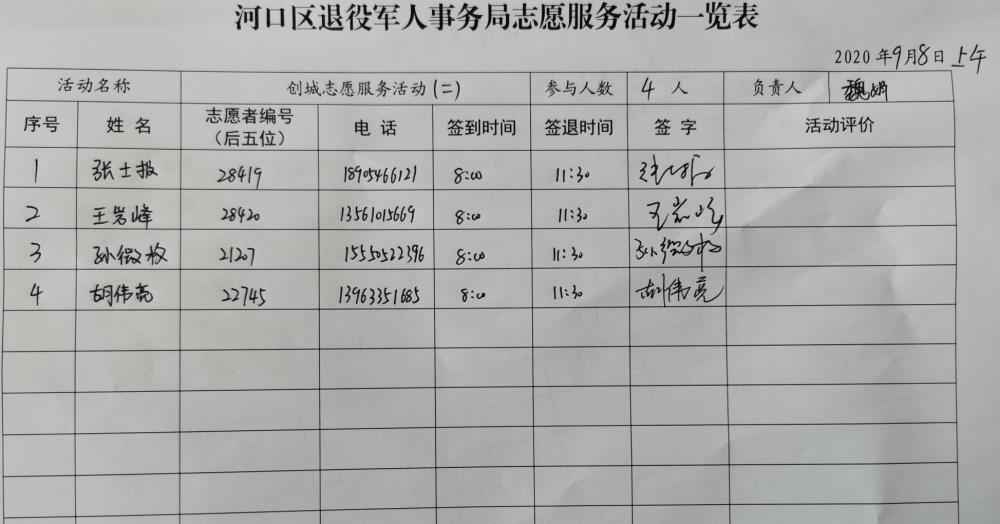 河口区退役军人事务局志愿服务活动一览表
2020 年9月8日 上午
活动名称 创城志愿服务活动(二) 参与人数 4 人 负责人 魏娟
序号 姓 名 志愿者编号（后五位） 电 话 签到时间 签退时间 签 字 活动评价
1 张士报 28419 18905466121 8:00 11:30
2 王岩峰 28420 13561015669 8:00 11:30 王岩峰
3 孙微波 21207 15550522396 8:00 11:30
4 胡伟亮 22745 13963351685 8:00 11:30 胡伟亮